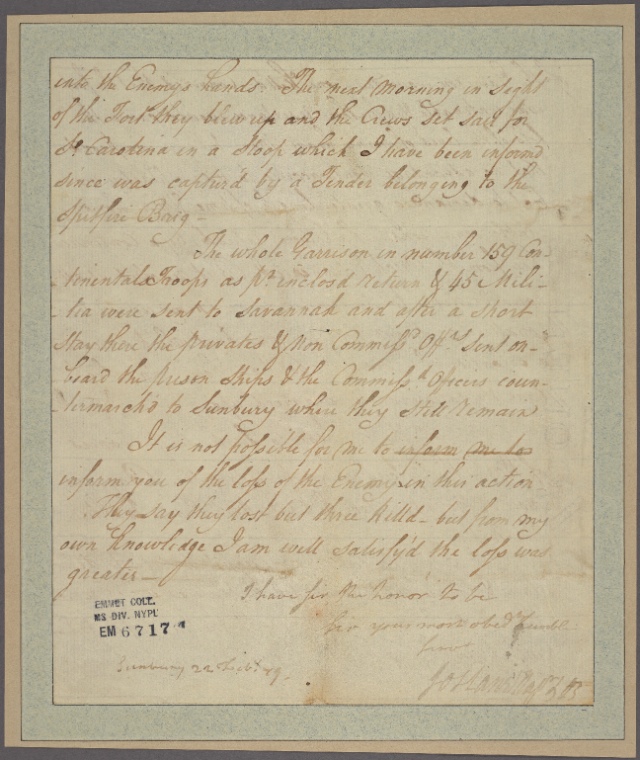 into the Enemys hands. The next Morning in Sight
of the Fort they blew up and the Crews set sail for
So Carolina in a Sloop which I have been informd
since was captur'd by a Tender belonging to the
Spitfire
The whole Garrison in number 159 Con-
tinental Troops as pr. inclosd return & 45 Mili-
tia were sent to Savannah and after a Short
Stay there the privates & Non Commissd Offrs sent on-
board the prison Ships & the Commissd Officers coun-
termarch'd to Sunbury where they still remain
It is not possible for me to inform me to
inform you of the loss of the Enemy in this action
They say they lost but three killd - but from my
own knowledge I am well satisfy'd the loss was
greater -
I have sir the honor to be
Sir your most obedt humble
EMMET COLL.
MS DIV. NYPL
EM 6717
Sunbury 22 79